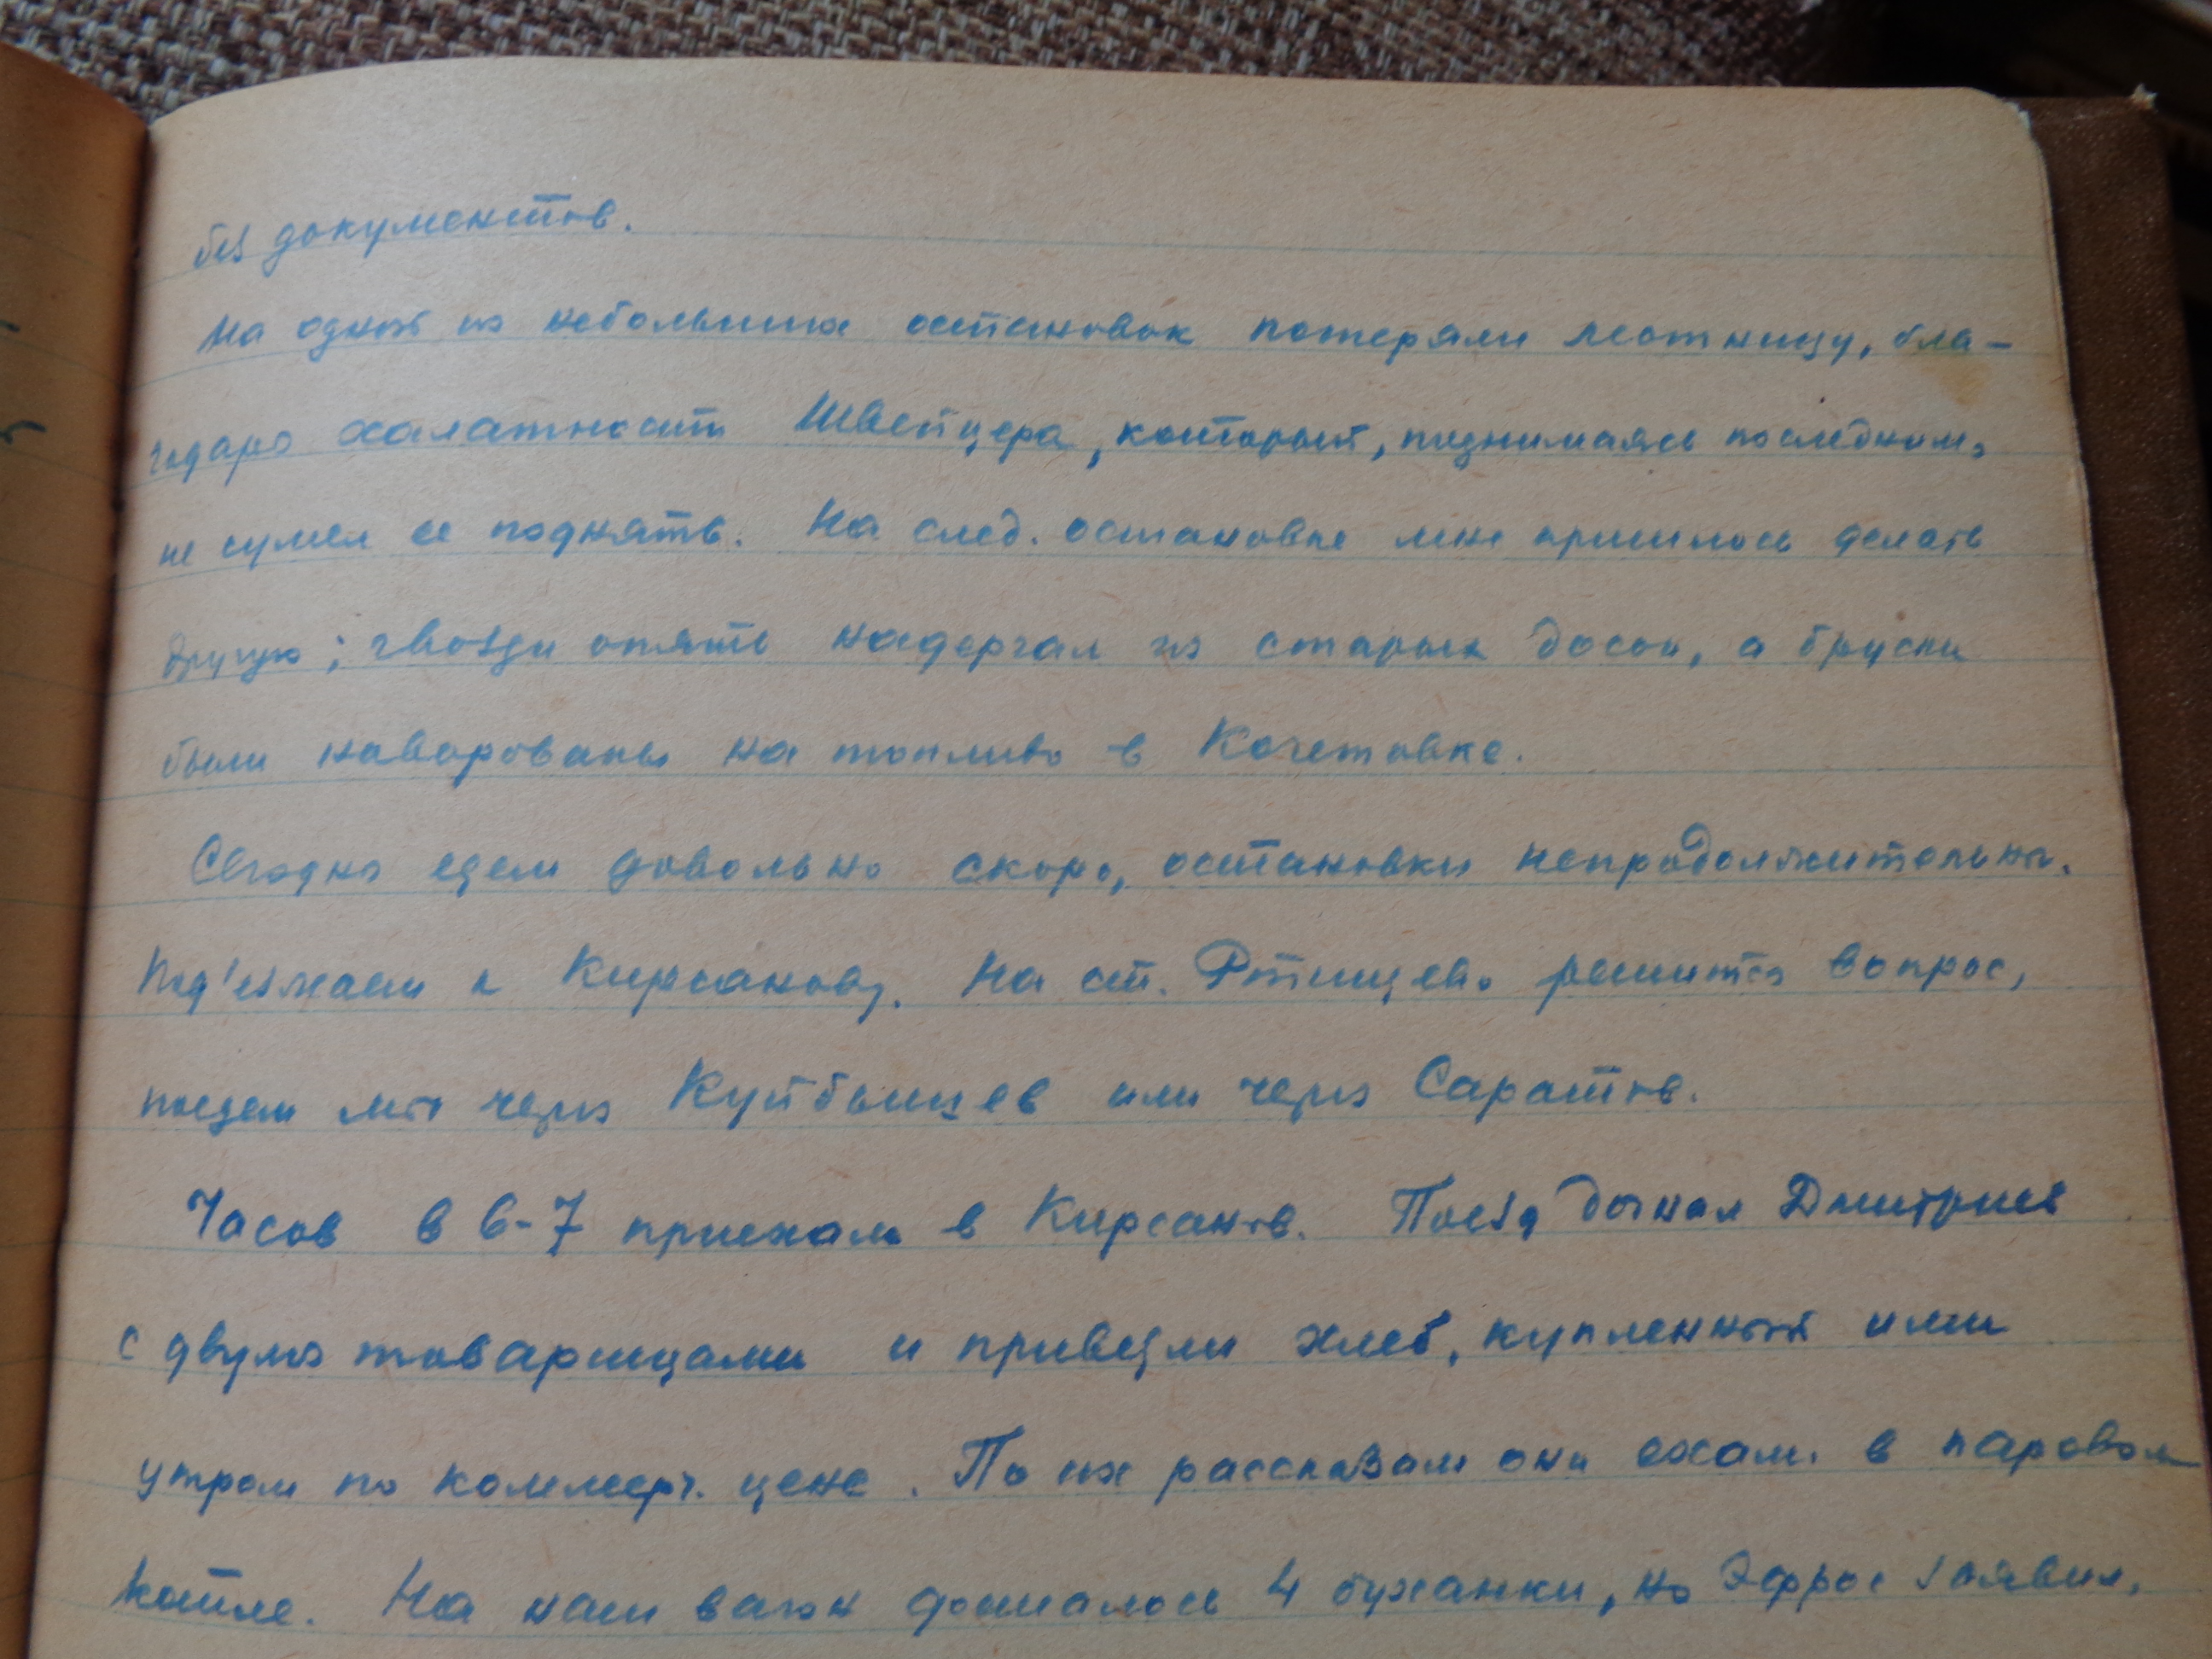 без документов.
На одной из небольших остановок потеряли лестницу, бла-
годаря халатности Швейцера, который, поднимаясь последним,
не сумел ее поднять. На след. остановке мне пришлось делать
другую; гвозди опять надергал из старых досок, а бруски
были наворованы на топливо в Кочетовке.
Сегодня едем довольно скоро, остановки непродолжительны.
Под'езжаем к Кирсанову. На ст. Ртищево решится вопрос,
поедем мы через Куйбышев или через Саратов.
Часов в 6-7 приехали в Кирсанов. Поезд догнал Дмитриев
с двумя товарищами и привезли хлеб, купленный ими
утром по коммерч. цене. По их рассказам они ехали в паровом
котле. На наш вагон досталось 4 буханки, но Эфрос заявил,